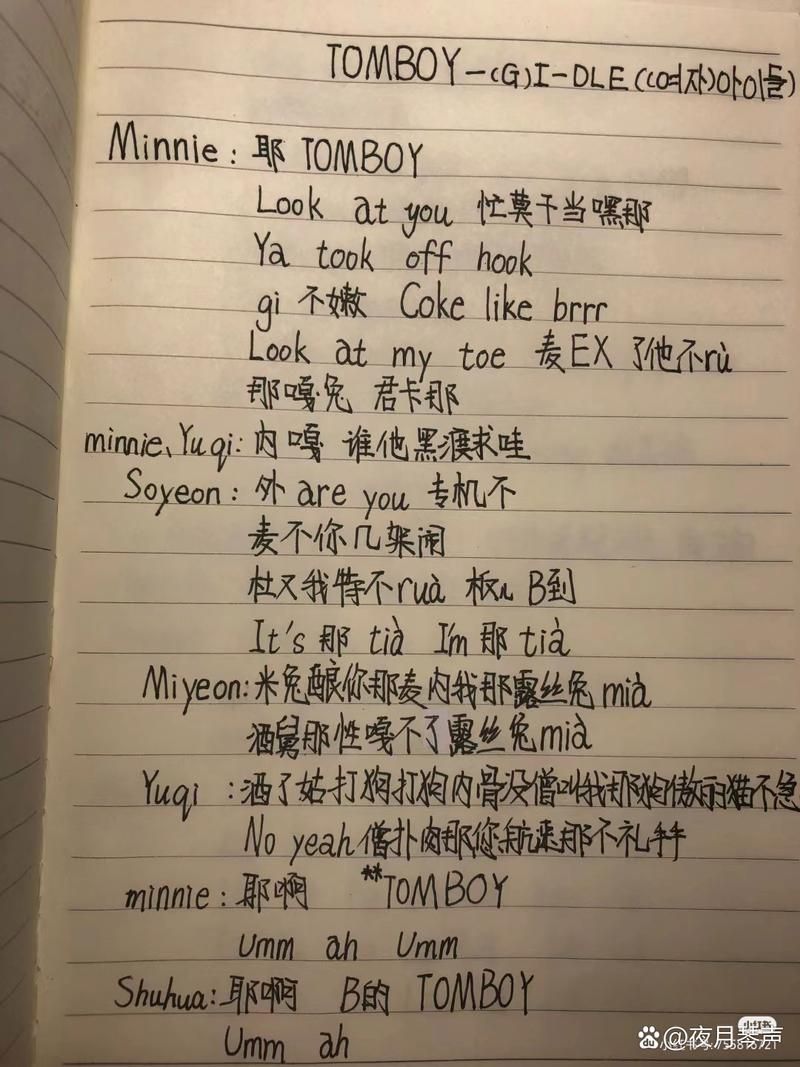 TOMBOY-(G)I-DLE((여자)아이들)
Minnie: 耶 TOMBOY
Look at you 忙莫干当嘿那
Ya took off hook
gi 不嫩 Coke like brrr
Look at my toe 麦EX了他不rù
那嘎兔 君卡那
minnie、Yuqi: 内嘎 谁他黑渡求哇
Soyeon: 外 are you 专机不
麦不你几架闹
杜又我特不ruà 板儿B到
It's 那 tià I'm 那 tià
Miyeon: 米兔酿你那麦内我那露丝兔mià
洒舅那性嘎不了露丝兔mià
Yuqi: 洒了姑打狗打狗内骨没僧叫我那狗傲丽猫不急
No yeah 僧扑肉那您航来那不礼
minnie: 耶啊 **TOMBOY
Umm ah Umm
Shuhua: 耶啊 B的 TOMBOY
Umm ah
@夜月琴声